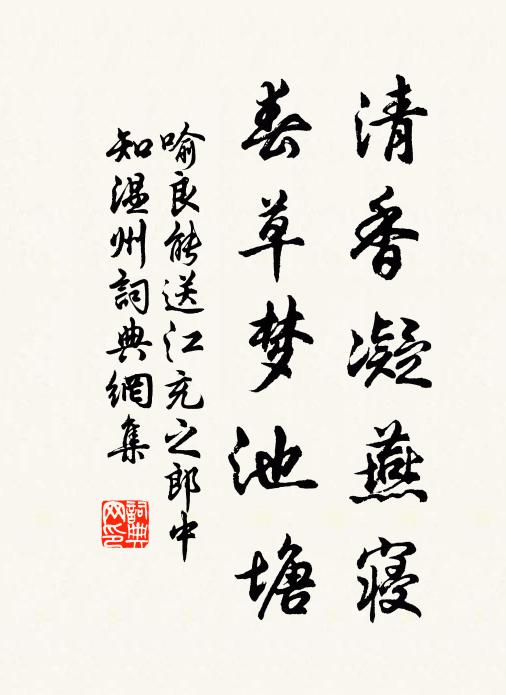 清香凝燕寝
春草梦池塘
喻良能送江充之郎中
知温州詞典網集
詞典网印